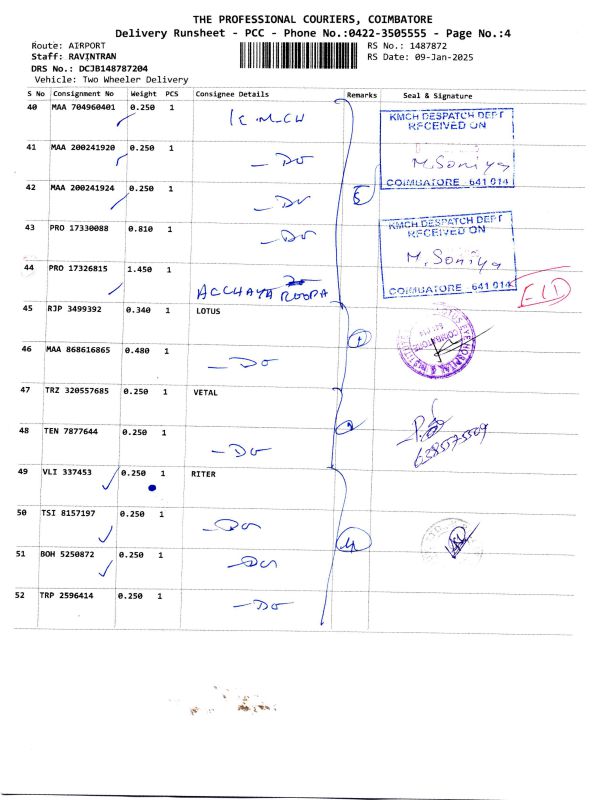 THE PROFESSIONAL COURIERS, COIMBATORE
Delivery Runsheet - PCC - Phone No.:0422-3505555 - Page No.:4
Route: AIRPORT RS No.: 1487872
Staff: RAVINTRAN RS Date: 09-Jan-2025
DRS No.: DCJB148787204
Vehicle: Two Wheeler Delivery
S No Consignment No Weight PCS Consignee Details Remarks Seal & Signature
40 MAA 704960401 0.250 1 K.M.CH
KMCH DESPATCH DEPT
RECEIVED ON
41 MAA 200241920 0.250 1 - Do
M.Soniya
COIMBATORE 641 014
42 MAA 200241924 0.250 1 - Do 5
KMCH DESPATCH DEPT
RECEIVED ON
43 PRO 17330088 0.810 1 - Do
M.Soniya
44 PRO 17326815 1.450 1 ACCHAYA ROOPA
COIMBATORE 641 014
45 RJP 3499392 0.340 1 LOTUS
46 MAA 868616865 0.480 1 - Do
47 TRZ 320557685 0.250 1 VETAL
48 TEN 7877644 0.250 1 - Do 2
6385575509
49 VLI 337453 0.250 1 RITER
50 TSI 8157197 0.250 1 - Do
51 BOH 5250872 0.250 1 - Do 4
52 TRP 2596414 0.250 1 - Do